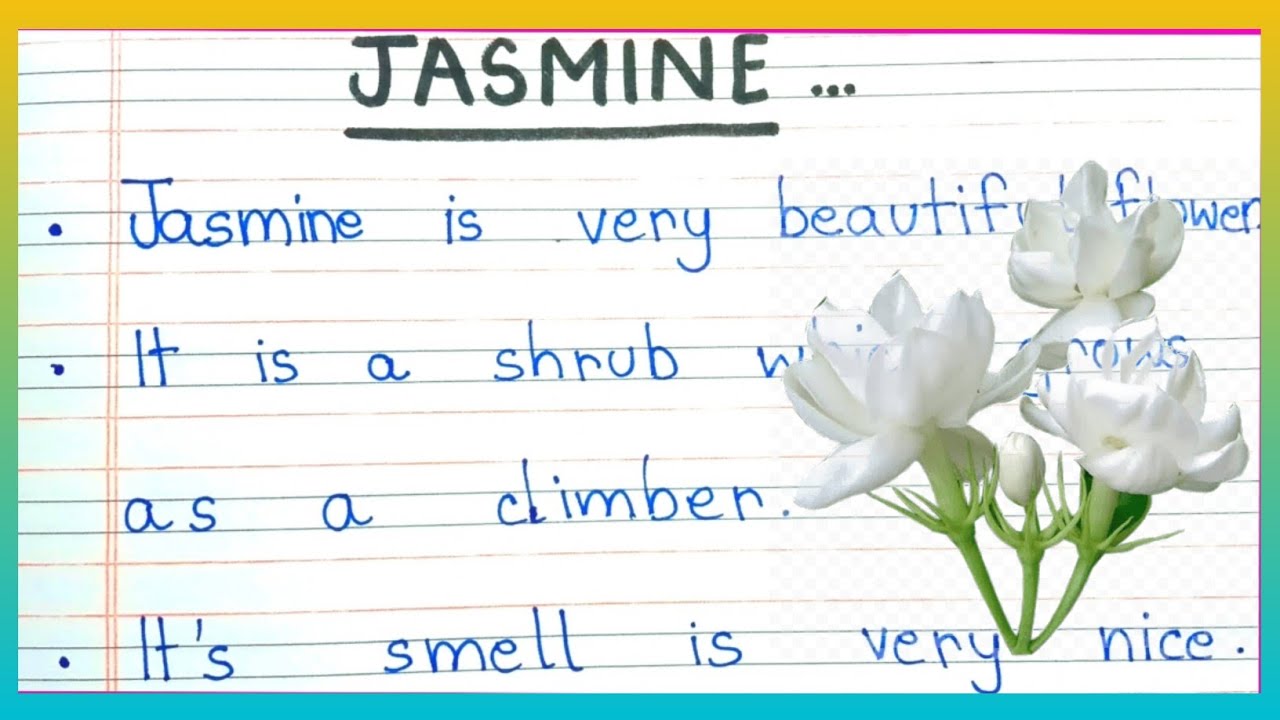 JASMINE ...
• Jasmine is very beautiful flower
• It is a shrub which grows
as a climber.
• It's smell is very nice.